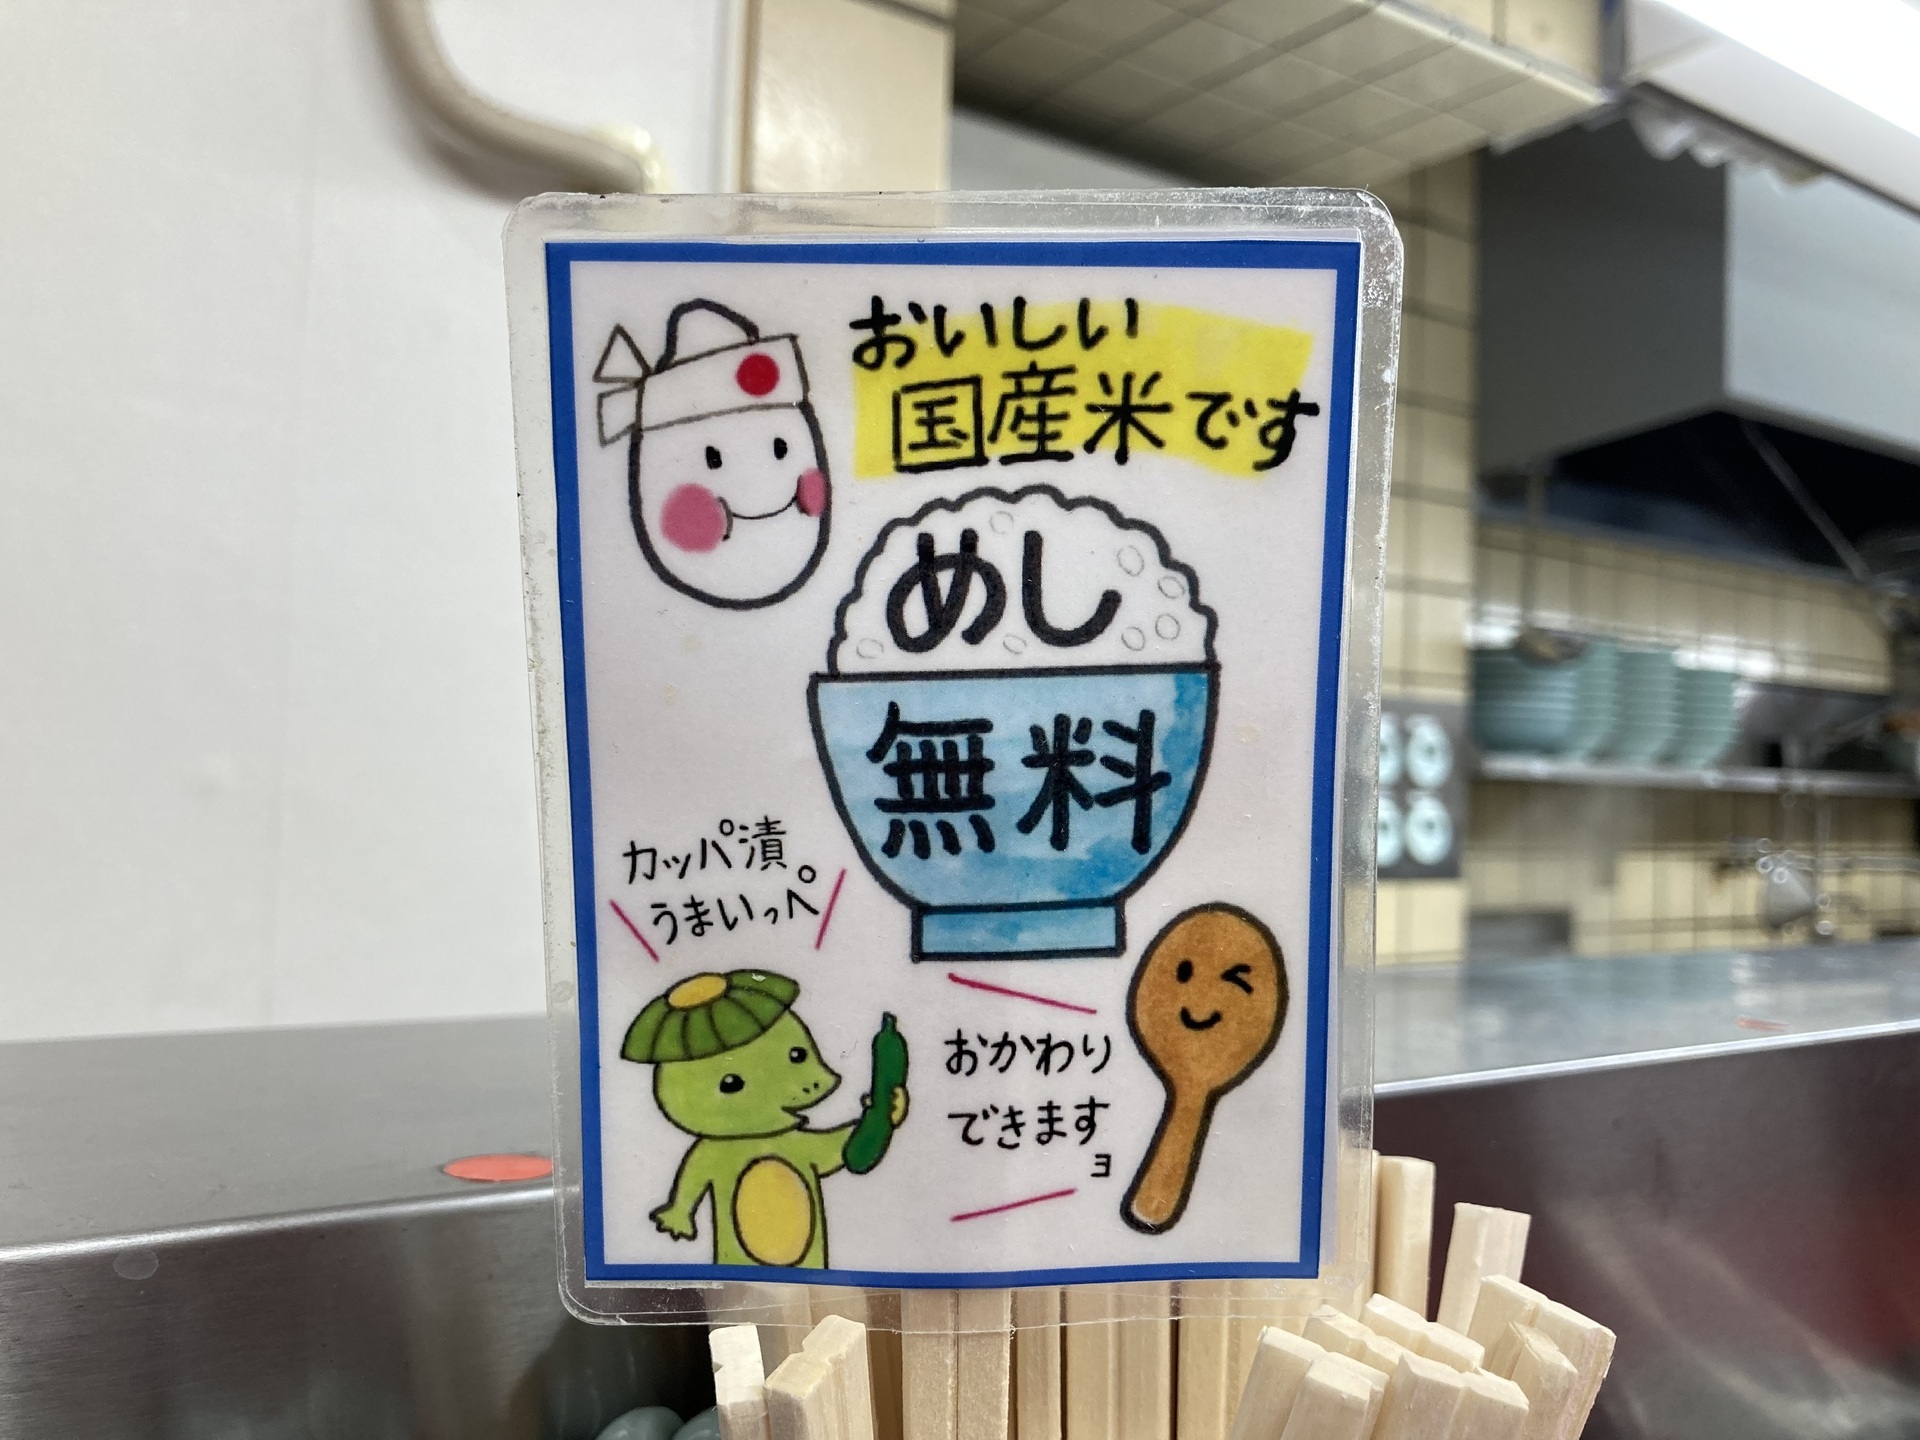 おいしい
国産米です
めし
無料
カッパ漬
うまいっペ
おかわり
できます
ヨ